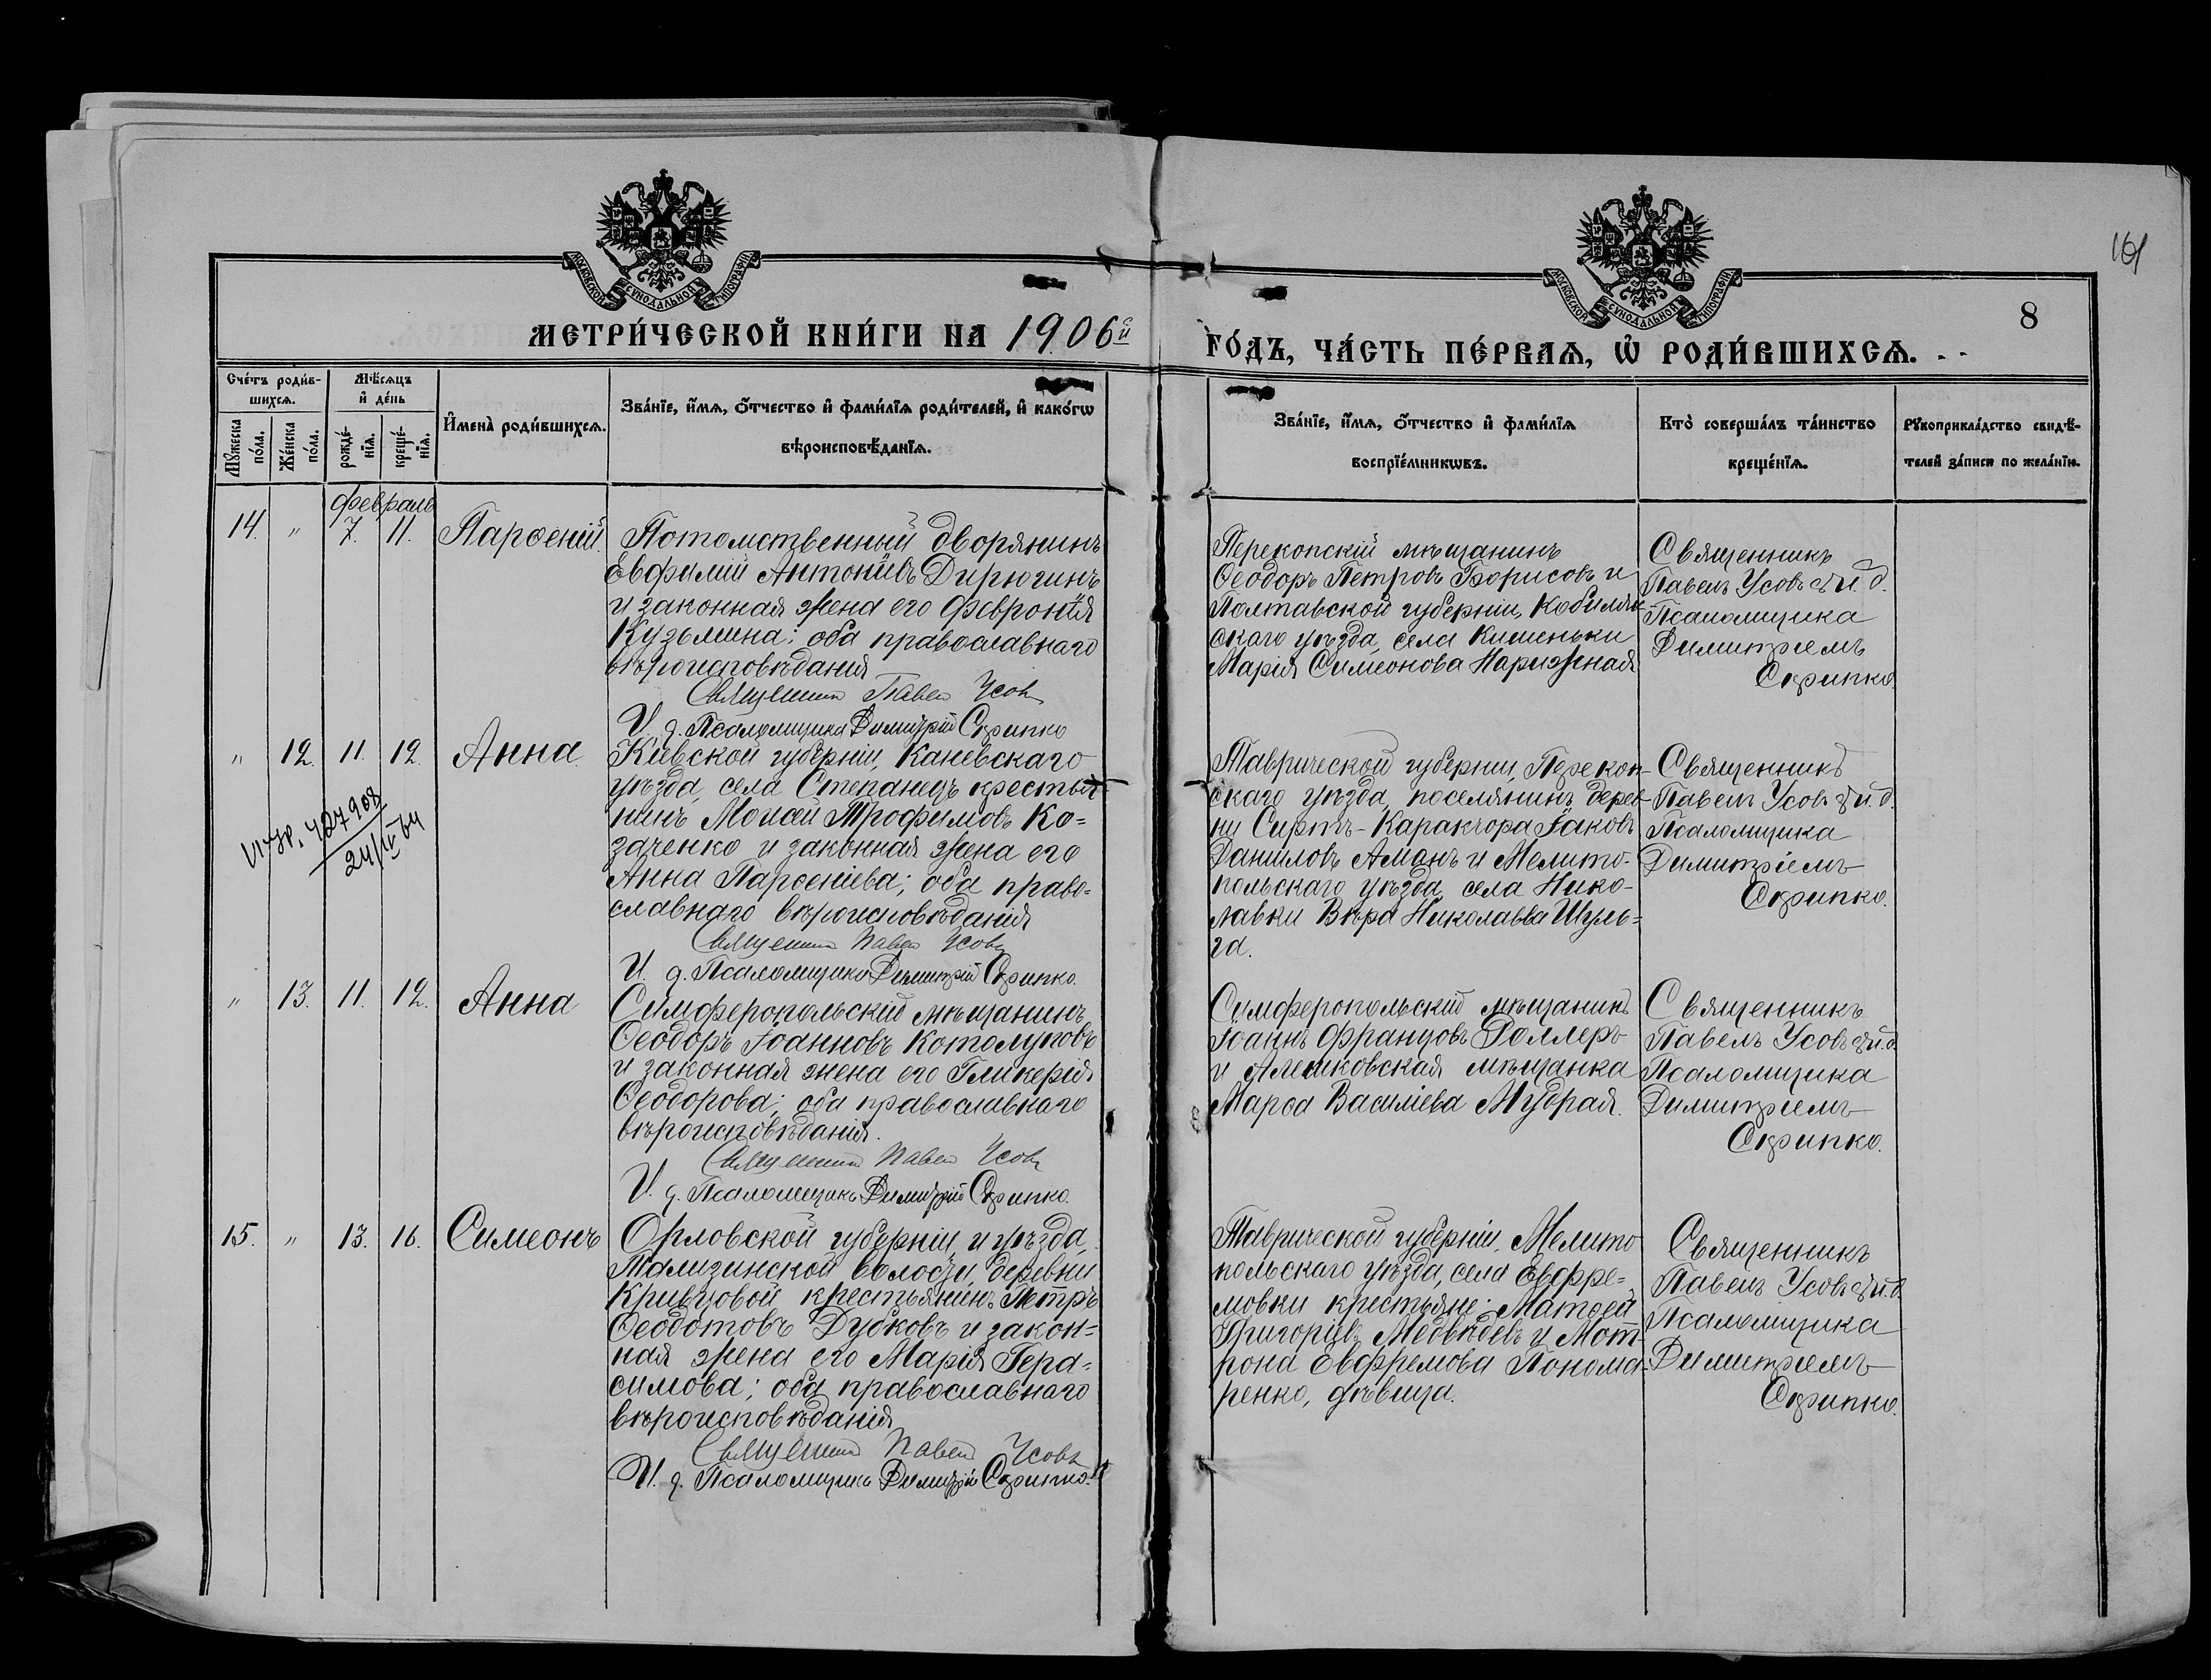 161
8
МОСКОВСКОЙ СѴНОДАЛЬНОЙ ТИПОГРАФІИ
МОСКОВСКОЙ СѴНОДАЛЬНОЙ ТИПОГРАФІИ
МЕТРИ́ЧЕСКОЙ КНИ́ГИ НА 1906й
ГО́ДЪ, ЧА́СТЬ ПЕ́РВАѦ, Ѡ҆ РОДИ́ВШИХСѦ.
Сче́тъ роди́в-
шихсѧ.
Мꙋжеска по́ла.
Же́нска по́ла.
Мѣ́сѧцъ и҆ де́нь
рожде́-
нїѧ.
креще́-
нїѧ.
И҆мена̀ роди́вшихсѧ.
Зва́нїе, и҆́мѧ, ѻ҆́тчество и҆ фами́лїѧ роди́телей, и҆ како́гѡ
вѣроисповѣ́данїѧ.
Зва́нїе, и҆́мѧ, ѻ҆́тчество и҆ фами́лїѧ
воспрїе́мникѡвъ.
Кто̀ соверша́лъ та́инство
креще́нїѧ.
Рꙋкоприкла́дство свидѣ́-
телей за́писи по жела́нїю.
февраль
14. " 7. 11. Парѳеній.
Потомственный дворянинъ
Евфимій Антоніевъ Дирюгинъ
и законная жена его Февронія
Кузьмина; оба православнаго
вѣроисповѣданія
Священникъ Павелъ Усовъ
И. д. Псаломщика Димитрій Скрипко
Перекопскій мѣщанинъ
Ѳеодоръ Петровъ Борисовъ и
Полтавской губерніи, Кобеляк-
скаго уѣзда, села Кишеньки
Марія Симеонова Нарижная
Священникъ
Павелъ Усовъ съ и. д.
Псаломщика
Димитріемъ
Скрипко.
" 12. 11. 12. Анна.
Кіевской губерніи, Каневскаго
уѣзда, села Степанецъ крестья-
нинъ Моисей Трофимовъ Ко=
заченко и законная жена его
Анна Парѳеніева; оба право=
славнаго вѣроисповѣданія
Священникъ Павелъ Усовъ
И. д. Псаломщика Димитрій Скрипко.
427908
24/IV 64
Таврической губерніи, Перекоп-
скаго уѣзда, поселянинъ дерев-
ни Сиртъ-Каракчора Іаковъ
Даниловъ Аманъ и Мелито-
польскаго уѣзда, села Нико-
лавки Вѣра Николаева Шуль=
га.
Священникъ
Павелъ Усовъ съ и. д.
Псаломщика
Димитріемъ
Скрипко.
" 13. 11. 12. Анна
Симферопольскій мѣщанинъ
Ѳеодоръ Іоанновъ Котолуповъ
и законная жена его Гликерія
Ѳеодорова; оба православнаго
вѣроисповѣданія.
Священникъ Павелъ Усовъ
И. д. Псаломщика Димитрій Скрипко.
Симферопольскій мѣщанинъ
Іоаннъ Францовъ Роллеръ
и Алешковская мѣщанка
Марѳа Василіева Мудрая.
Священникъ
Павелъ Усовъ съ и. д.
Псаломщика
Димитріемъ
Скрипко.
15. " 13. 16. Симеонъ
Орловской губерніи и уѣзда,
Тализинской волости, деревни
Кривцовой крестьянинъ Петръ
Ѳеодотовъ Дубковъ и закон=
ная жена его Марія Гера=
симова; оба православнаго
вѣроисповѣданія
Священникъ Павелъ Усовъ
И. д. Псаломщика Димитрій Скрипко.
Таврической губерніи, Мелито
польскаго уѣзда, села Евфре=
мовки крестьяне: Матѳей
Григоріевъ Медвѣдевъ и Мат-
рона Евфремова Понома-
ренко, дѣвица.
Священникъ
Павелъ Усовъ съ и. д.
Псаломщика
Димитріемъ
Скрипко.